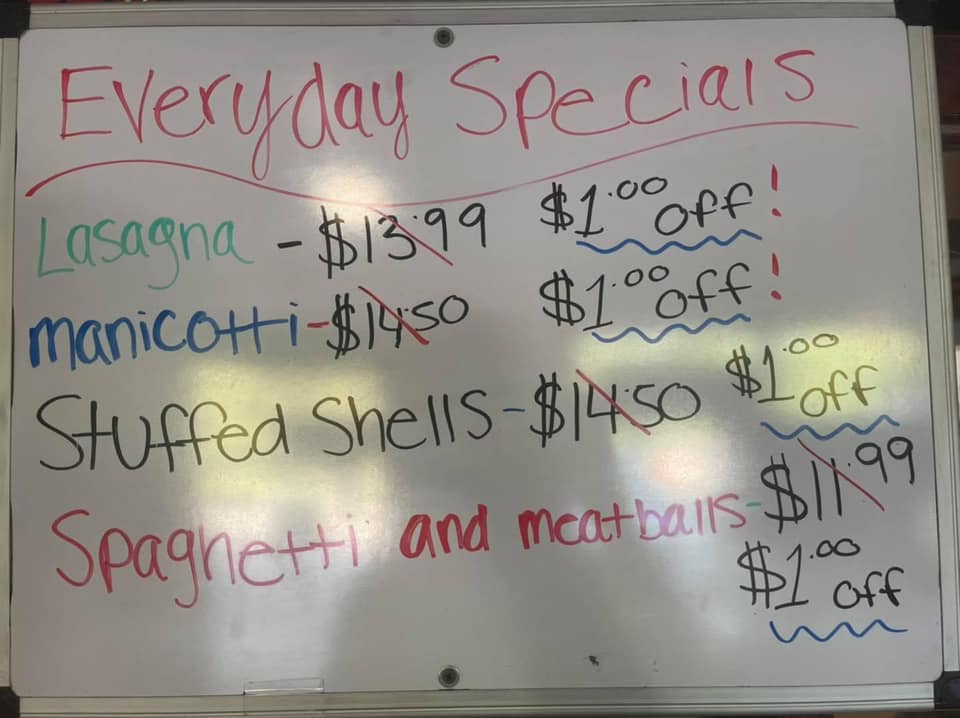 Everyday Specials
Lasagna - $13.99 $1.00 off!
manicotti - $14.50 $1.00 off!
Stuffed Shells - $14.50 $1.00 off
Spaghetti and meatballs - $11.99
$1.00 off